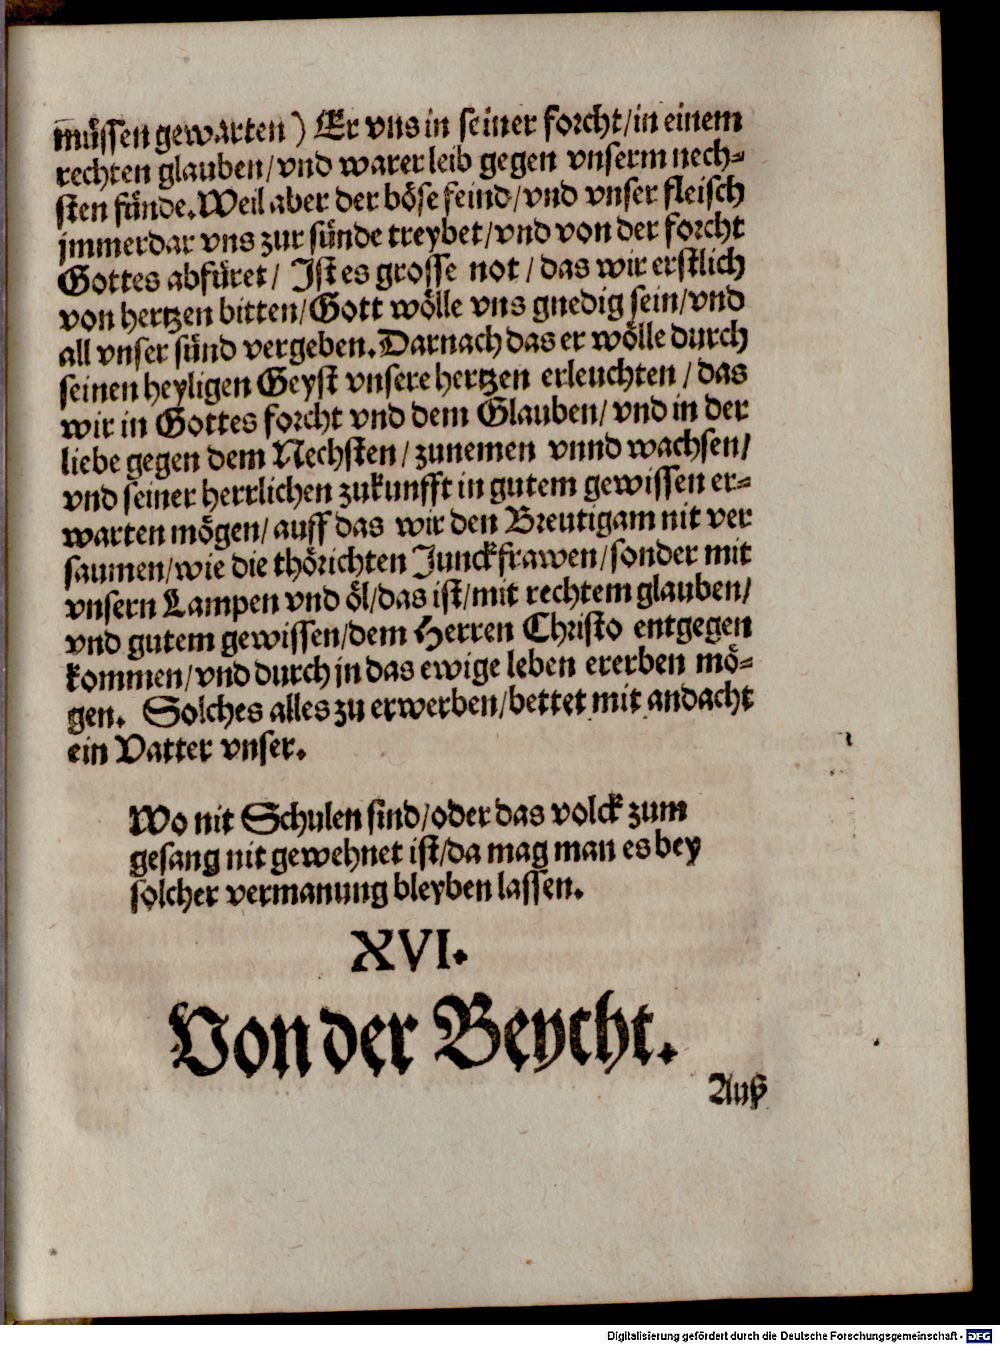 müssen gewarten) Er vns in seiner forcht/in einem
rechten glauben/vnd warer leib gegen vnserm nech-
sten fünde. Weil aber der böse feind/vnd vnser fleisch
jmmerdar vns zur sünde treybet/vnd von der forcht
Gottes abfüret/ Ist es grosse not/das wir erstlich
von hertzen bitten/Gott wölle vns gnedig sein/vnd
all vnser sünd vergeben. Darnach das er wölle durch
seinen heyligen Geyst vnsere hertzen erleuchten/das
wir in Gottes forcht vnd dem Glauben/vnd in der
liebe gegen dem Nechsten/zunemen vnnd wachsen/
vnd seiner herrlichen zukunfft in gutem gewissen er-
warten mögen/auff das wir den Breutigam nit ver
saumen/wie die thörichten Junckfrawen/sonder mit
vnsern Lampen vnd öl/das ist/mit rechtem glauben/
vnd gutem gewissen/dem Herren Christo entgegen
kommen/vnd durch jn das ewige leben ererben mö-
gen. Solches alles zu erwerben/bettet mit andacht
ein Vatter vnser.
Wo nit Schulen sind/oder das volck zum
gesang nit gewehnet ist/da mag man es bey
solcher vermanung bleyben lassen.
XVI.
Von der Beycht.
Auß
Digitalisierung gefördert durch die Deutsche Forschungsgemeinschaft - DFG